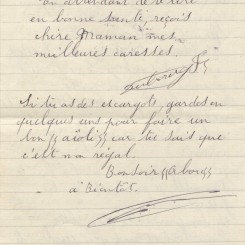 En attendant de te lire
en bonne santé, reçois
chère Maman mes
meilleures caresses.
Si tu as des escargots, gardes en
quelques uns pour faire un
bon "aïoli" car tu sais que
c'est mon régal.
Bonsoir
à bientôt.